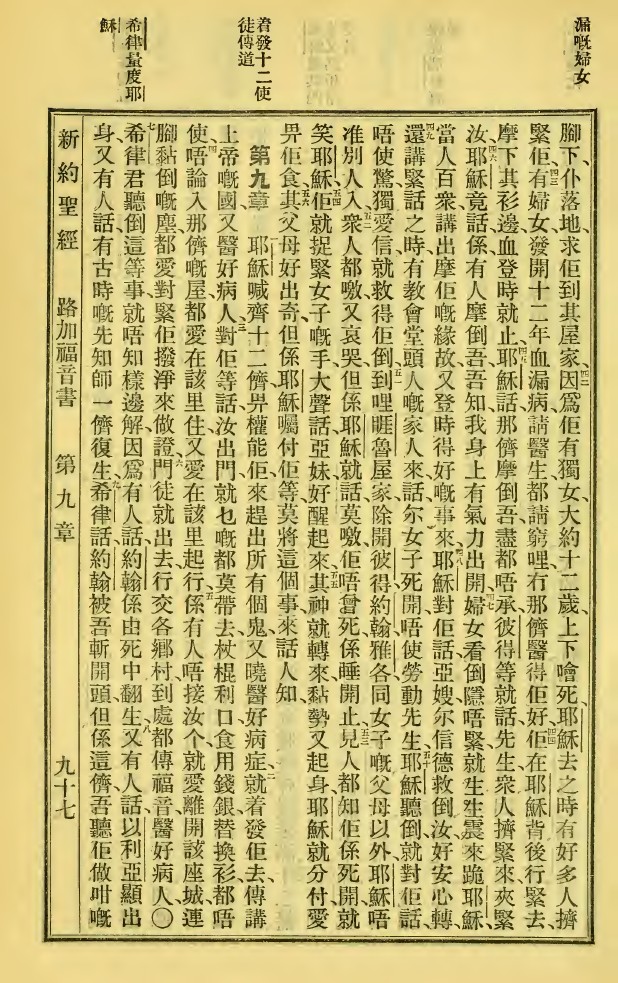 漏嘅婦女
着發十二使
徒傳道
希律量度耶
穌
腳下、仆落地、求佢到其屋家、四二因爲佢有獨女、大約十二歲上下、噲死、耶穌去之時、有好多人擠
緊佢、四三有婦女發開十二年血漏病、請醫生都請窮哩、冇那儕醫得佢好、四四佢在耶穌背後行緊去、
摩下其衫邊、血登時就止、四五耶穌話、那儕摩倒吾、盡都唔承、彼得等就話、先生、衆人擠緊來夾緊
汝、四六耶穌竟話、係有人摩倒吾、吾知我身上有氣力出開、四七婦女看倒隱唔緊、就生生震來跪耶穌、
當人百衆講出摩佢嘅緣故、又登時得好嘅事來、四八耶穌對佢話、亞嫂、尔信德救倒汝、好安心轉、
四九還講緊話之時、有教會堂頭人嘅家人來話、尔女子死開、唔使勞動先生、五十耶穌聽倒、就對佢話、
唔使驚、獨愛信、就救得佢倒、五一到哩睚魯屋家、除開彼得約翰雅各、同女子嘅父母以外、耶穌唔
准別人入、五二衆人都噭又哀哭、但係耶穌就話、莫噭、佢唔曾死、係睡開止、五三見人都知佢係死開、就
笑耶穌、五四佢就捉緊女子嘅手、大聲話、亞妹、好醒起來、五五其神就轉來黏勢、又起身、耶穌就分付愛
畀佢食、五六其父母好出奇、但係耶穌囑付佢等、莫將這個事來話人知、
第九章　耶穌喊齊十二儕、畀權能佢來趕出所有個鬼、又曉醫好病症、二就着發佢去、傳講
上帝嘅國、又醫好病人、三對佢等話、汝出門、就乜嘅都莫帶去、杖棍利口食用錢銀替換衫都唔
使、四唔論入那儕嘅屋、都愛在該里住、又愛在該里起行、五係有人唔接汝个、就愛離開該座城、連
腳黏倒嘅塵、都愛對緊佢撥淨來做證、六門徒就出去、行交各鄉村、到處都傳福音、醫好病人、○
七希律君聽倒這等事、就唔知樣邊解、因爲有人話、約翰係由死中翻生、八又有人話、以利亞顯出
身、又有人話、有古時嘅先知師一儕復生、九希律話、約翰被吾斬開頭、但係這儕吾聽佢做咁嘅
新約聖經　路加福音書　第九章　九十七